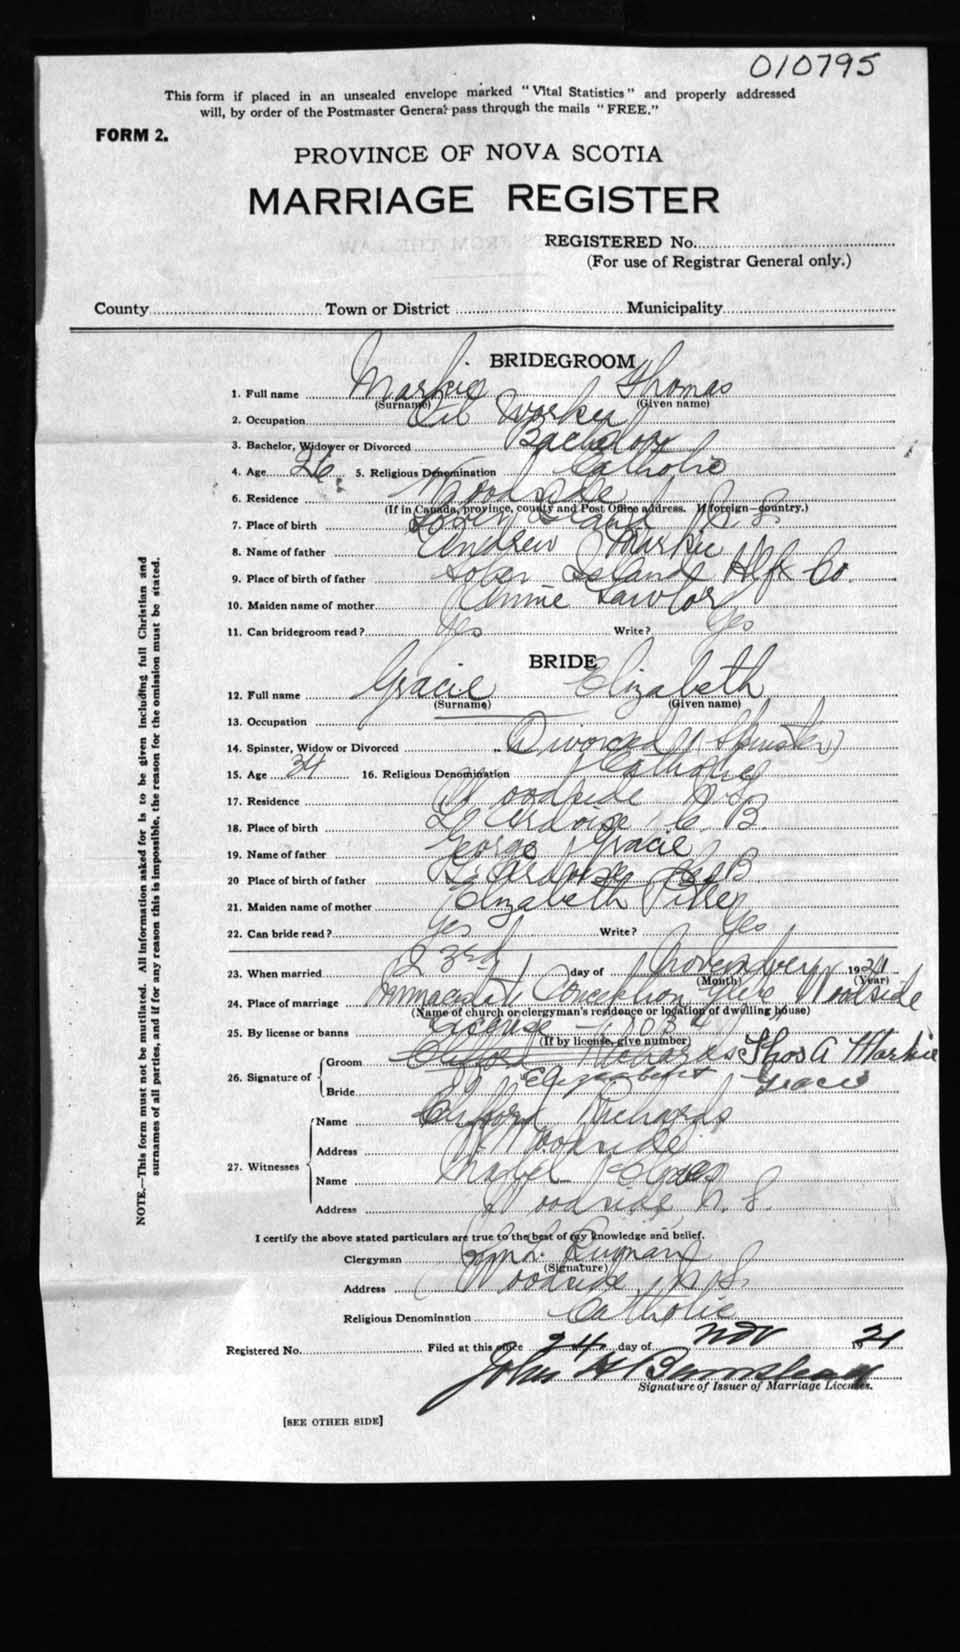 010795
This form if placed in an unsealed envelope marked "Vital Statistics" and properly addressed
will, by order of the Postmaster General pass through the mails "FREE."
FORM 2.
PROVINCE OF NOVA SCOTIA
MARRIAGE REGISTER
REGISTERED No.
(For use of Registrar General only.)
County Town or District Municipality
BRIDEGROOM
1. Full name Markie Thomas
(Surname) (Given name)
2. Occupation Oil Worker
3. Bachelor, Widower or Divorced Bachelor
4. Age 26 5. Religious Denomination Catholic
6. Residence Woodside
(If in Canada, province, county and Post Office address. If foreign—country.)
7. Place of birth Sober Island N. S.
8. Name of father Andrew Markie
9. Place of birth of father Sober Island Hlfx Co.
10. Maiden name of mother Annie Lawlor
11. Can bridegroom read? Yes Write? Yes
BRIDE
12. Full name Gracie Elizabeth
(Surname) (Given name)
13. Occupation
14. Spinster, Widow or Divorced Divorced (Spinster)
15. Age 34 16. Religious Denomination Catholic
17. Residence Woodside N. S.
18. Place of birth L'Ardoise C. B.
19. Name of father George Gracie
20 Place of birth of father L'Ardoise C. B.
21. Maiden name of mother Elizabeth
22. Can bride read? Yes Write? Yes
23. When married 23rd day of November 1921
(Month) (Year)
24. Place of marriage Immaculate Conception Woodside
(Name of church or clergyman's residence or location of dwelling house)
25. By license or banns License
(If by license, give number)
26. Signature of Groom Clifford Richards Thos A Markie
Bride Elizabeth Gracie
27. Witnesses Name Clifford Richards
Address Woodside
Name Mabel
Address Woodside, N. S.
I certify the above stated particulars are true to the best of my knowledge and belief.
Clergyman
(Signature)
Address Woodside, N. S.
Religious Denomination Catholic
Registered No. Filed at this office 24 day of Nov 21
John H
Signature of Issuer of Marriage Licenses.
[SEE OTHER SIDE]
NOTE.—This form must not be mutilated. All information asked for is to be given including full Christian and
surnames of all parties, and if for any reason this is impossible, the reason for the omission must be stated.